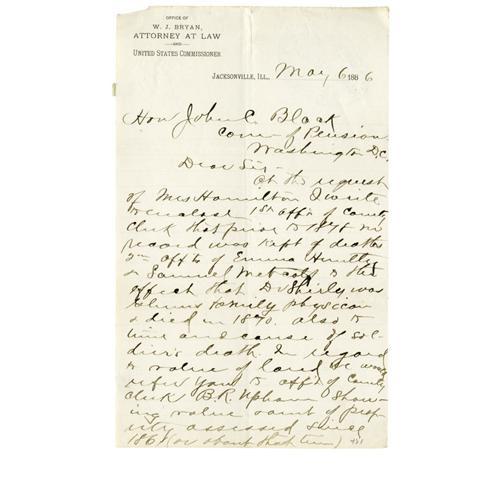 OFFICE OF
W. J. BRYAN,
ATTORNEY AT LAW
AND
UNITED STATES COMMISSIONER.
JACKSONVILLE, ILL., May 6 1886
Hon John C. Black
Com of Pension
Washington D.C.
Dear Sir,-
At the request
of Mrs Hamilton I write
to enclose 1st afft of County
clerk that prior to 1878 no
record was kept of deaths
2nd afft of Emma Hunter
& Samuel Metcalf to the
effect that Dr Shirly was
family physician
& died in 1870. also to
time and cause of sol-
dier's death. In regard
to value of land we would
refer you to afft of County
clerk B. R. Upham show-
ing value & amt of prop-
erty assessed since
186 (or about that time)